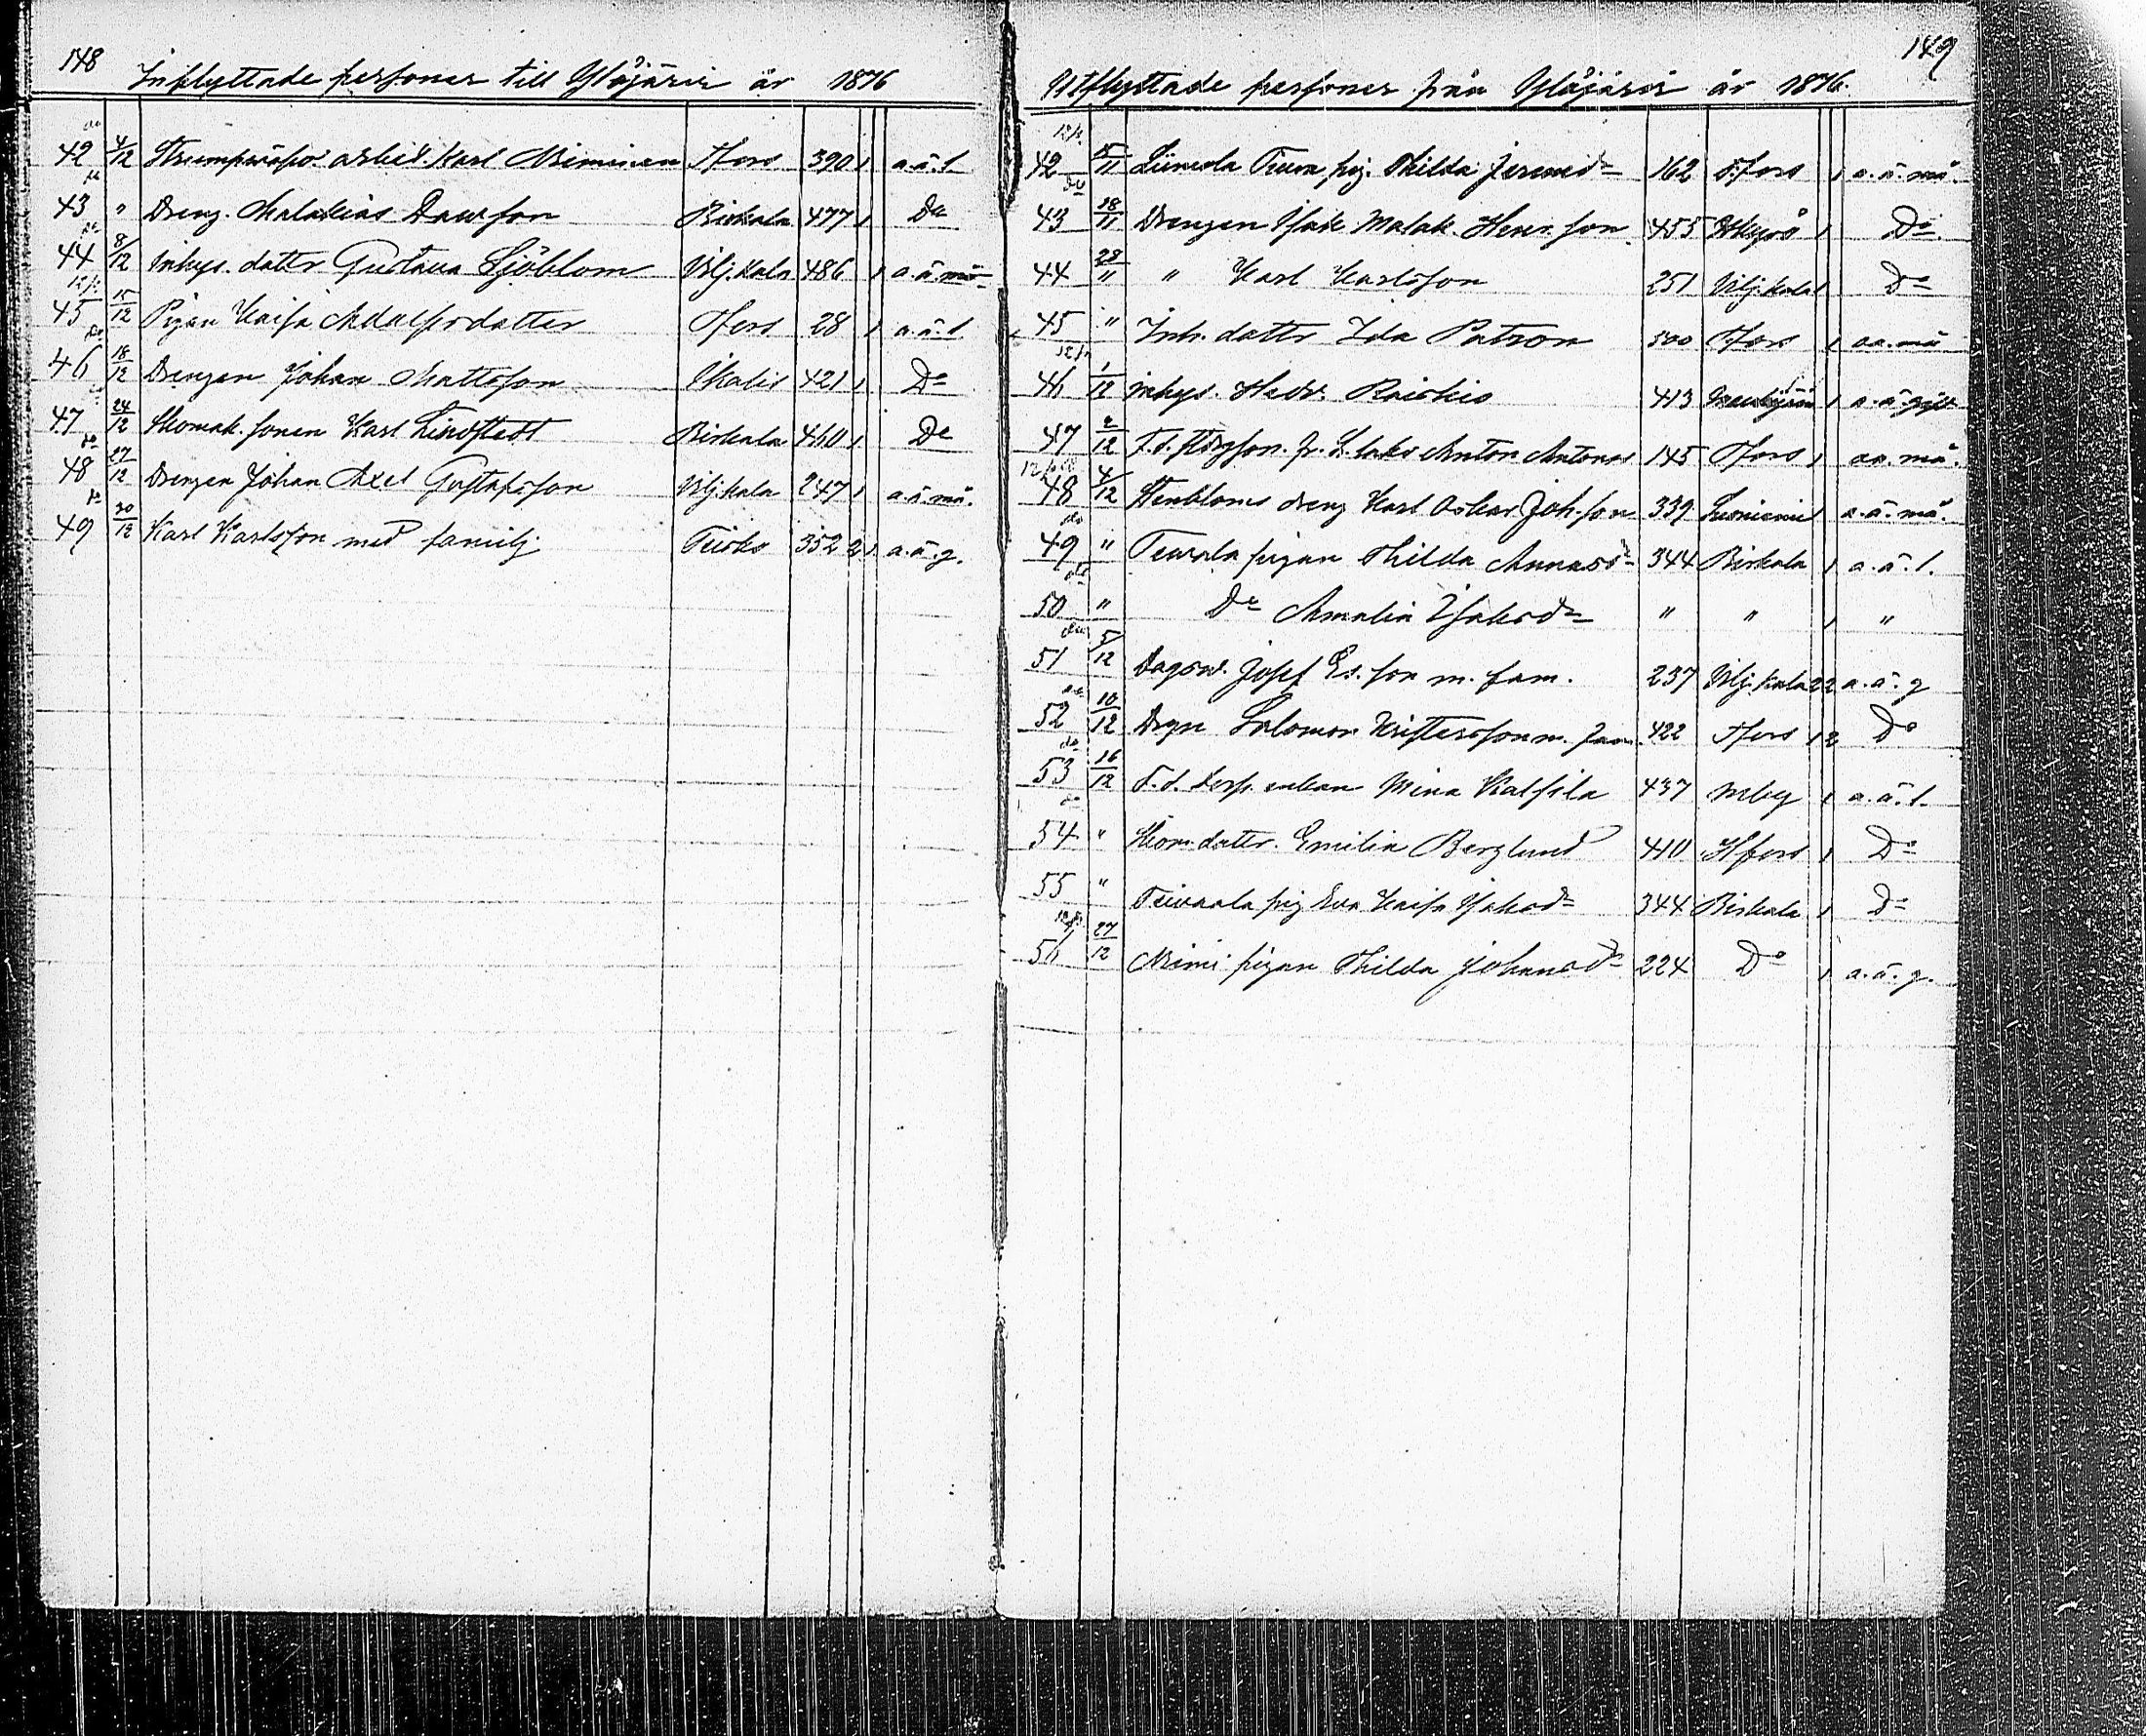 148 Inflyttade personer till Ylöjärvi år 1876
42 4/12 Strumpväfvar arbet. Karl Niminen Tfors 390 1 a.ä.l.
43 " Dreng. Malakias Dawsson Birkala 477 1 Do
44 8/12 Inhys. dottr Gustava Sjöblom Vilj.kala 486 1 a.ä.må
45 15/12 Pigan Kaisa Adolfsdotter Tfors 28 1 a.ä.l.
46 18/12 Drengen Johan Mattsson Ikalis 421 1 Do
47 24/12 Skomak. sonen Karl Lindstedt Birkala 460 1 Do
48 27/12 Drengen Johan Axel Gustafsson Vilj.kala 247 1 a.ä.må.
49 30/12 Karl Karlsson med familj 352 2 1 a.ä.g.
149
Utflyttade personer från Ylöjärvi år 1876.
42 15/11 pig. Thilda Jeremdr 162 T.fors 1 a.ä.må.
43 18/11 Drengen Isak Malak. Henr.son 455 1 Do
44 28/" " Karl Karlsson 251 Vilj.kala 1 Do
45 " Inh. dottr Ida Patron 300 Tfors 1 a.ä. må
46 1/12 Inhys. Hedv. 413 1
47 2/12 Anton 145 Tfors 1 a.ä. må.
48 4/12 Stenbloms dreng Karl Oskar Joh.son 339 1 a.ä. må.
49 " pigan Thilda 344 Birkala 1 a.ä.l.
50 " Do Amalia Isaksdr " " 1 "
51 5/12 Dagsv. Josef Es.son m. fam. 237 Vilj.kala 2 2 a.ä.g
52 10/12 Drgn Salomon Kristersson m. fam. 422 Tfors 1 2 Do
53 16/12 F.d. torp. enkan Mina Kalsila 437 Mby 1 a.ä.l.
54 " Skom. dottr. Emilia Berglund 410 Hfors 1 Do
55 " pig Eva Kaisa Isaksdr 344 Birkala 1 Do
56 27/12 Nimi pigan Thilda Johansdr 224 Do 1 a.ä.g.